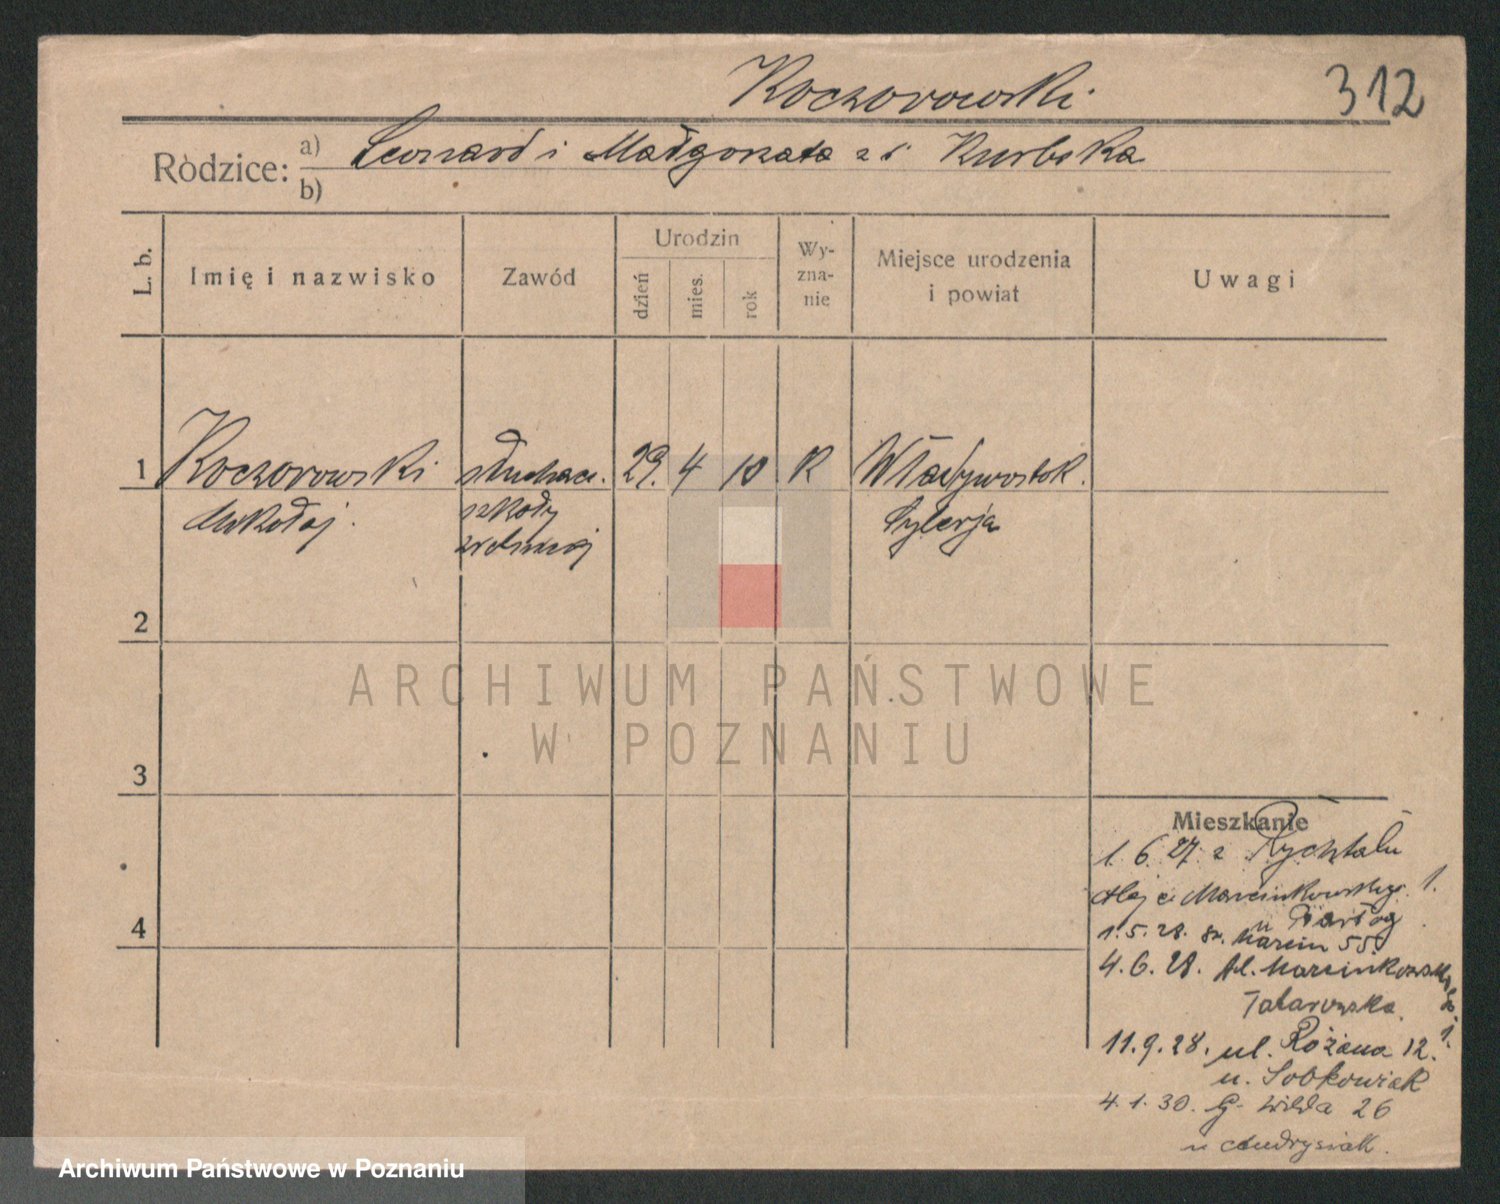 Koczorowski
312
Rodzice: a) Leonard i Małgorzata z d. Kurbska
b)
L. b.
Imię i nazwisko
Zawód
Urodzin
dzień
mies.
rok
Wy-
zna-
nie
Miejsce urodzenia
i powiat
Uwagi
1 Koczorowski słuchacz. 29. 4 10 K Władywostok.
Mikołaj. szkoły Syberja
2
3
4
ARCHIWUM PAŃSTWOWE
W POZNANIU
Mieszkanie
1.6.27. z Rychtalu
Marcinkowskiego. 1.
1.5.28. św. Marcin 55.
4.6.28. Al. Marcinkowskiego 1.
11.9.28. ul. Różana 12.
u. Sobkowiak
4.1.30. G. Wilda 26
u Andrysiak.
Archiwum Państwowe w Poznaniu